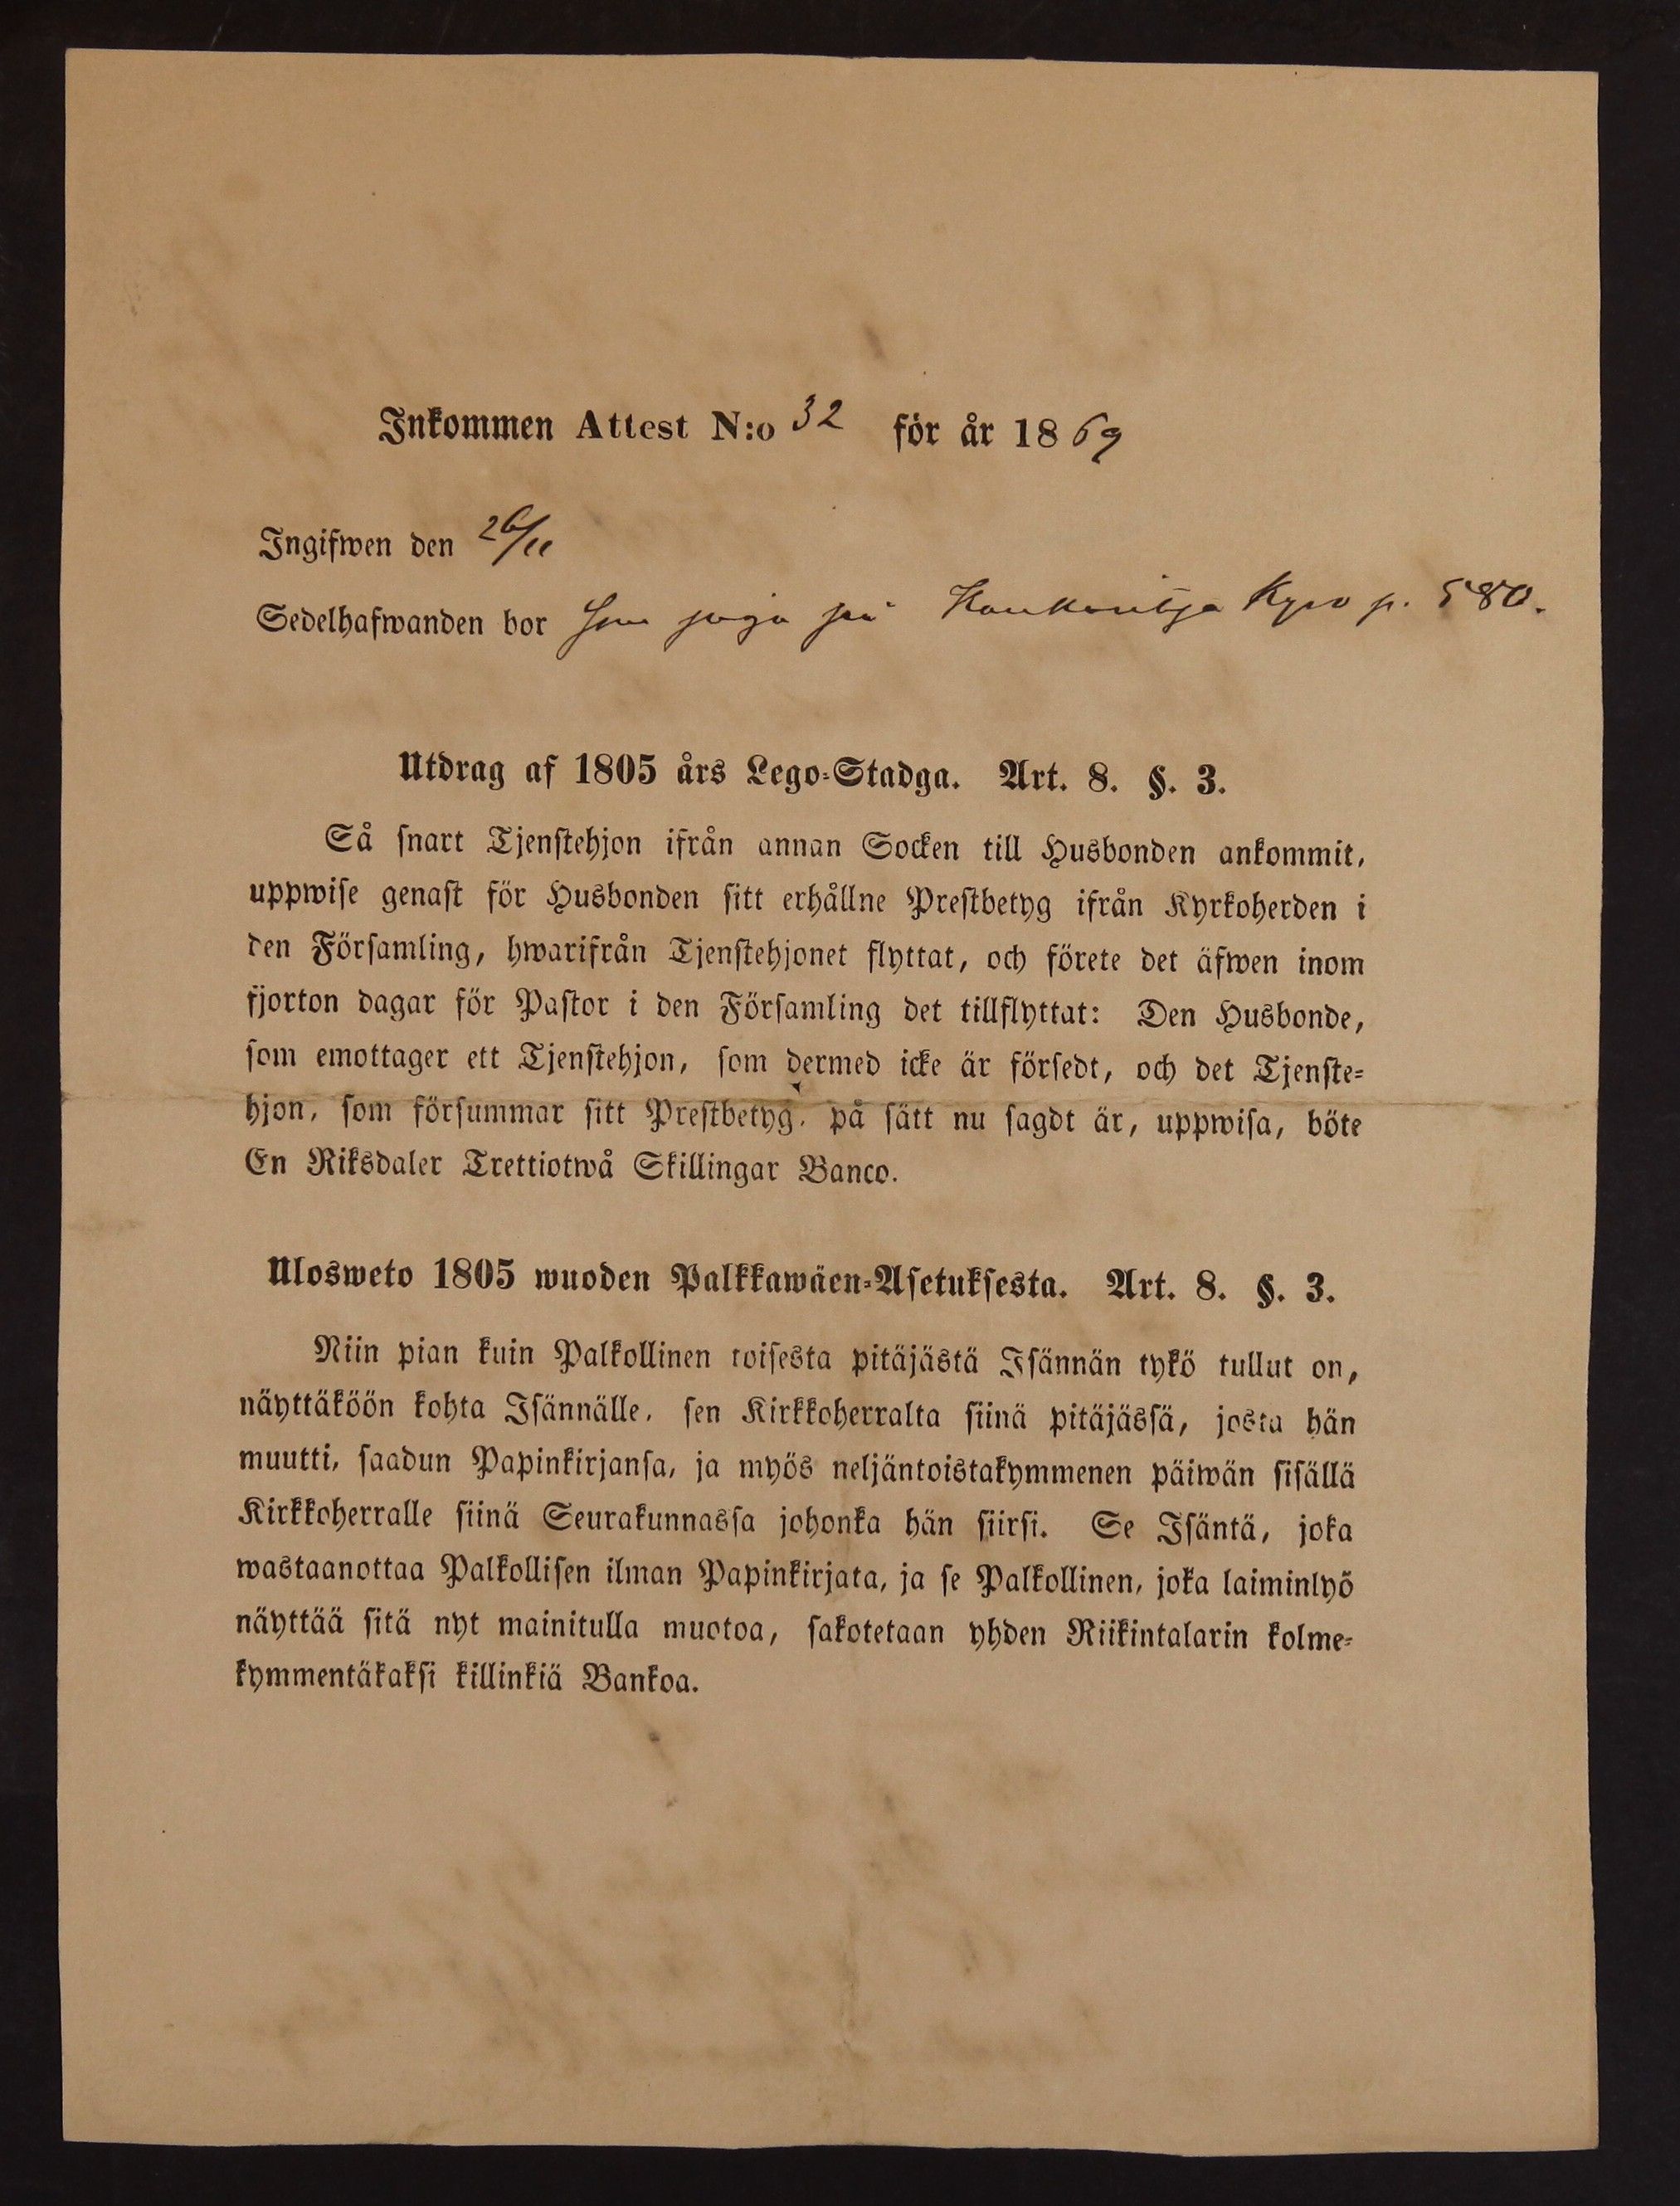 Inkommen Attest N:o 32 för år 1869
Ingifwen den 26/11
Sedelhafwanden bor som piga på Kyro p. 580.
Utdrag af 1805 års Lego-Stadga. Art. 8. §. 3.
Så snart Tjenstehjon ifrån annan Socken till Husbonden ankommit,
uppwise genast för Husbonden sitt erhållne Prestbetyg ifrån Kyrkoherden i
den Församling, hwarifrån Tjenstehjonet flyttat, och förete det äfwen inom
fjorton dagar för Pastor i den Församling det tillflyttat: Den Husbonde,
som emottager ett Tjenstehjon, som dermed icke är försedt, och det Tjenste-
hjon, som försummar sitt Prestbetyg, på sätt nu sagdt är, uppwisa, böte
En Riksdaler Trettiotwå Skillingar Banco.
Ulosweto 1805 wuoden Palkkawäen-Asetuksesta. Art. 8. §. 3.
Niin pian kuin Palkollinen toisesta pitäjästä Isännän tykö tullut on,
näyttäköön kohta Isännälle, sen Kirkkoherralta siinä pitäjässä, josta hän
muutti, saadun Papinkirjansa, ja myös neljäntoistakymmenen päiwän sisällä
Kirkkoherralle siinä Seurakunnassa johonka hän siirsi. Se Isäntä, joka
wastaanottaa Palkollisen ilman Papinkirjata, ja se Palkollinen, joka laiminlyö
näyttää sitä nyt mainitulla muotoa, sakotetaan yhden Riikintalarin kolme-
kymmentäkaksi killinkiä Bankoa.